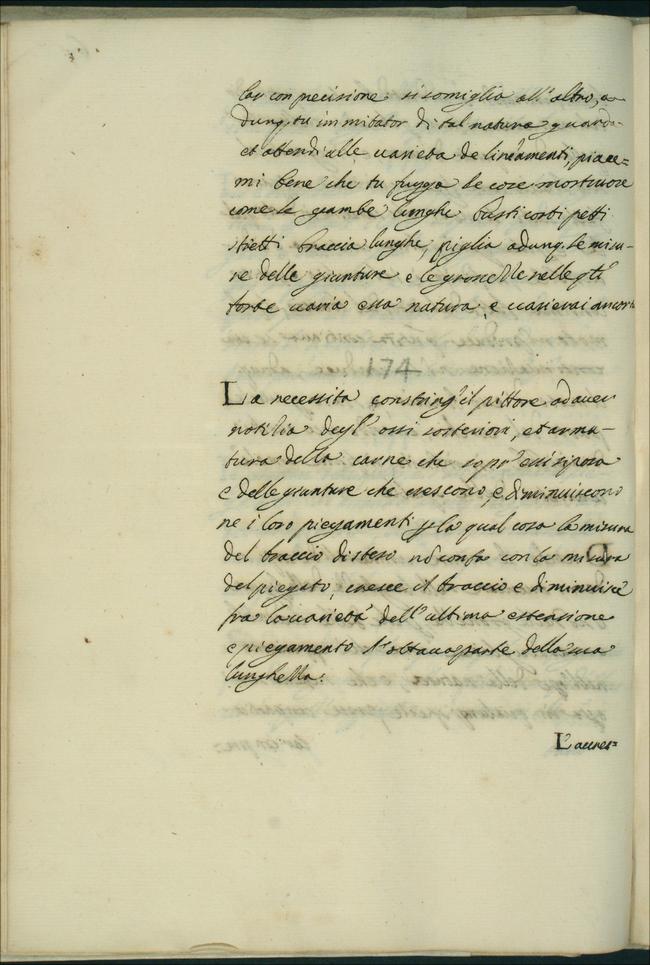 lar con precisione si somiglia all' altro, a=
dunq. tu immitator di tal natura guarda
et attendi alle varieta de lineamenti, piace=
mi bene che tu fugga le cose mostruose
come le gambe lunghe busti corti petti
stretti braccia lunghe, piglia adunq. le misu=
re delle giunture e le grossezze nelle
forte varia essa natura, e varierai ancor
174
La necessita constring' il pittore ad aver
notitia degl' ossi sostenitori, et arma=
tura della carne che sopr' essi si posa
e delle giunture che crescono, e diminuiscono
ne i loro piegamenti la qual cosa la misura
del braccio disteso nō confa con la misura
del piegato, cresce il braccio e diminuisce
fra la varieta dell' ultima estensione
e piegamento l' ottava parte della sua
lunghezza.
L' accres=